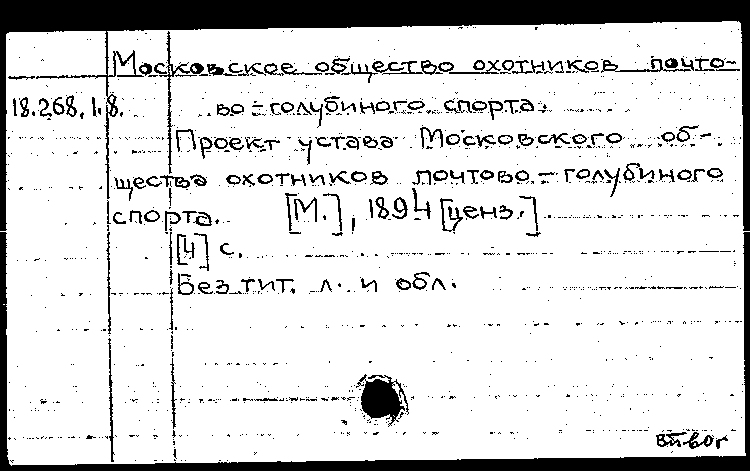 Московское общество охотников почто-
18.268.1.8. во-голубиного спорта.
Проект устава Московского об-
щества охотников почтово-голубиного
спорта. [М.], 1894 [ценз.].
[4] с.
Без тит. л. и обл.